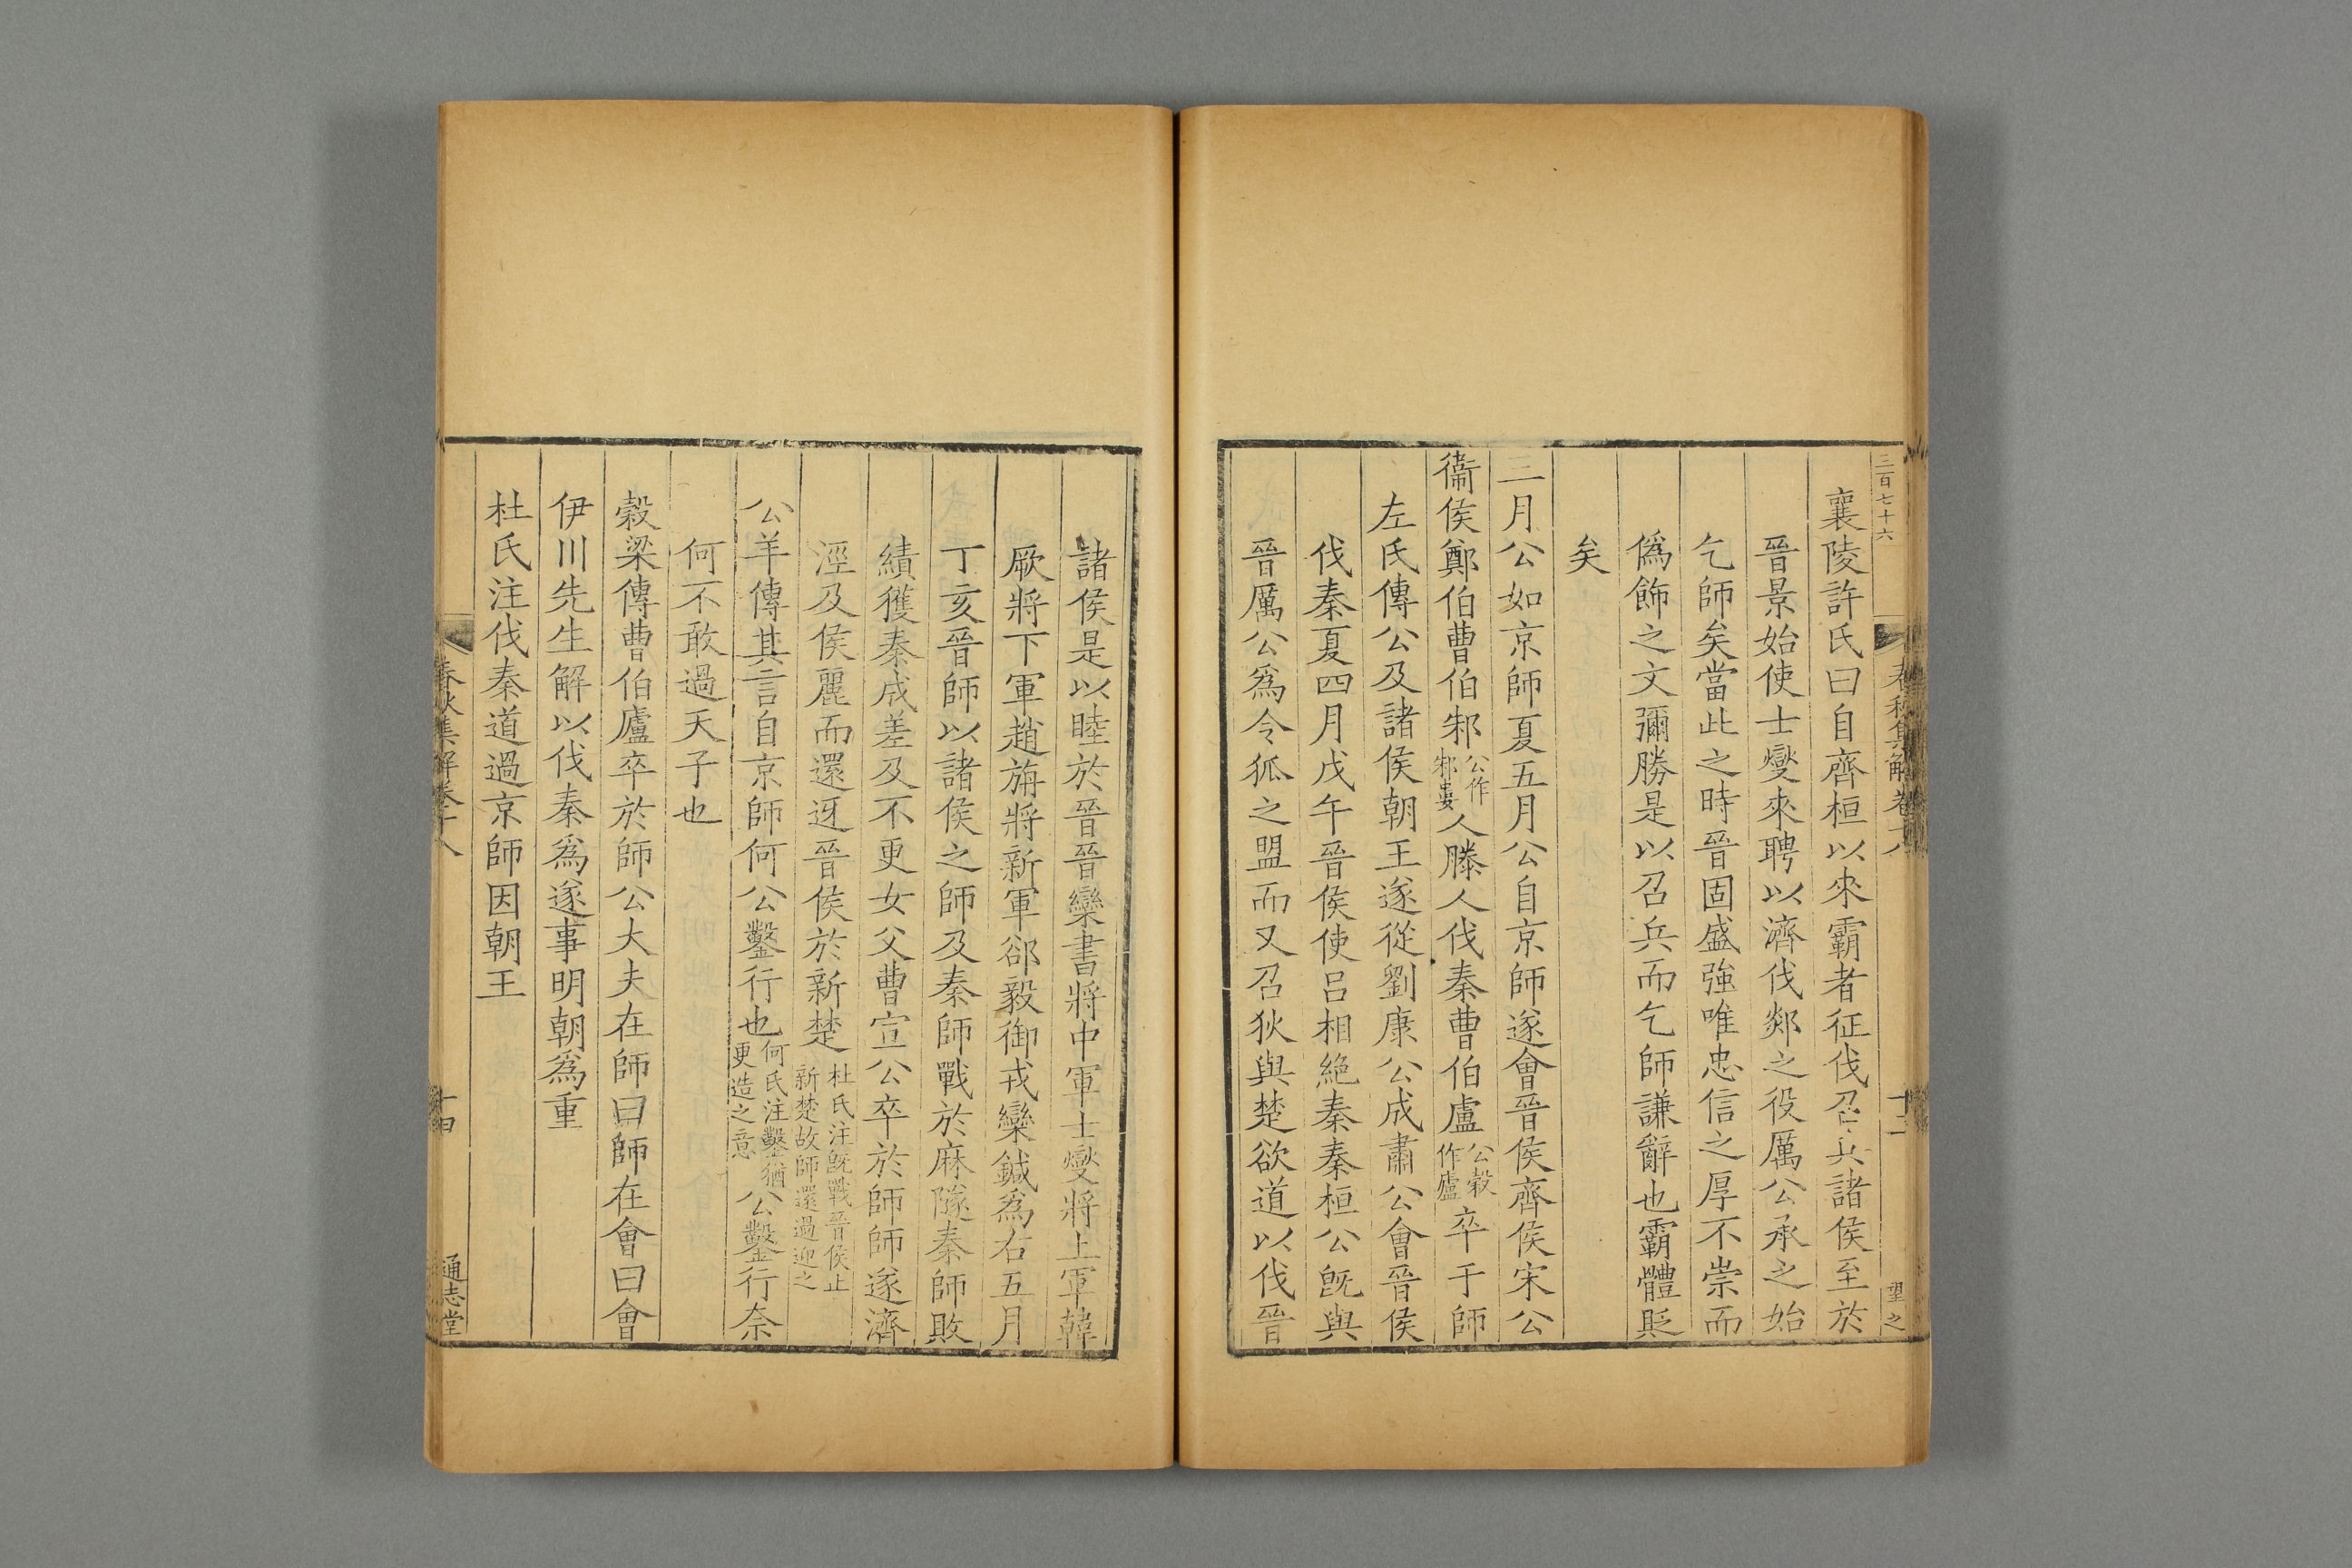 三百七十六
春秋集解卷十八
望之
襄陵許氏曰自齊桓以來霸者征伐召兵諸侯至於
晉景始使士燮來聘以濟伐郯之役厲公承之始
乞師矣當此之時晉固盛強唯忠信之厚不崇而
僞飾之文彌勝是以召兵而乞師謙辭也霸體貶
矣
三月公如京師夏五月公自京師遂會晉侯齊侯宋公
衞侯鄭伯曹伯邾公作邾婁人滕人伐秦曹伯盧公穀作廬卒于師
左氏傳公及諸侯朝王遂從劉康公成肅公會晉侯
伐秦夏四月戊午晉侯使呂相絶秦秦桓公旣與
晉厲公爲令狐之盟而又召狄與楚欲道以伐晉
諸侯是以睦於晉晉欒書將中軍士燮將上軍韓
厥將下軍趙旃將新軍郤毅御戎欒鍼爲右五月
丁亥晉師以諸侯之師及秦師戰於麻隧秦師敗
績獲秦成差及不更女父曹宣公卒於師師遂濟
涇及侯麗而還迓晉侯於新楚杜氏注旣戰晉侯止新楚故師還過迎之
公羊傳其言自京師何公鑿行也何氏注鑿猶更造之意公鑿行奈
何不敢過天子也
穀梁傳曹伯廬卒於師公大夫在師曰師在會曰會
伊川先生解以伐秦爲遂事明朝爲重
杜氏注伐秦道過京師因朝王
春秋集解卷十八
十四
通志堂